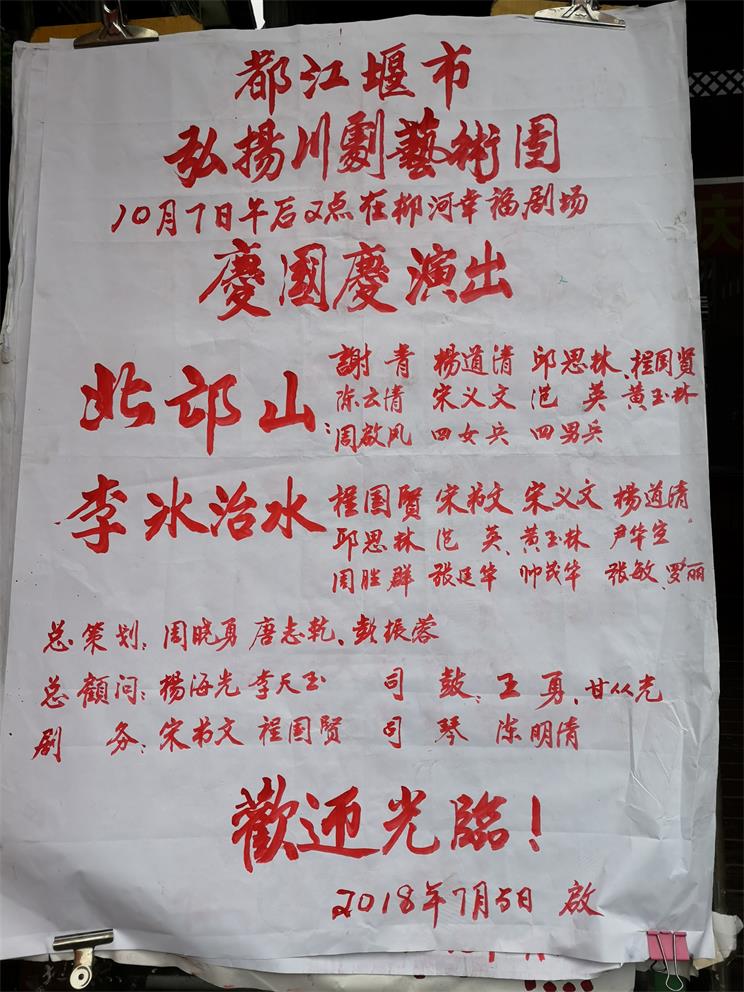 都江堰市
弘揚川劇藝術团
10月7日午后2点在柳河幸福剧场
慶國慶演出
北邙山
謝青 楊道清 邱思林、程国賢
陈云清 宋义文 范英 黄玉林
周啟风 四女兵 四男兵
李冰治水
程国賢 宋书文 宋义文 楊道清
邱思林 范英、黄玉林 尹华宝
周胜群 张廷华 帅茂华 张敏、罗丽
总策划：周晓勇 唐志乾、彭振蓉
总顧问：楊海光 李天玉 司鼓：王勇、甘从光
剧务：宋书文 程国賢 司琴 陈明清
歡迎光臨！
2018年7月5日 啟
庆